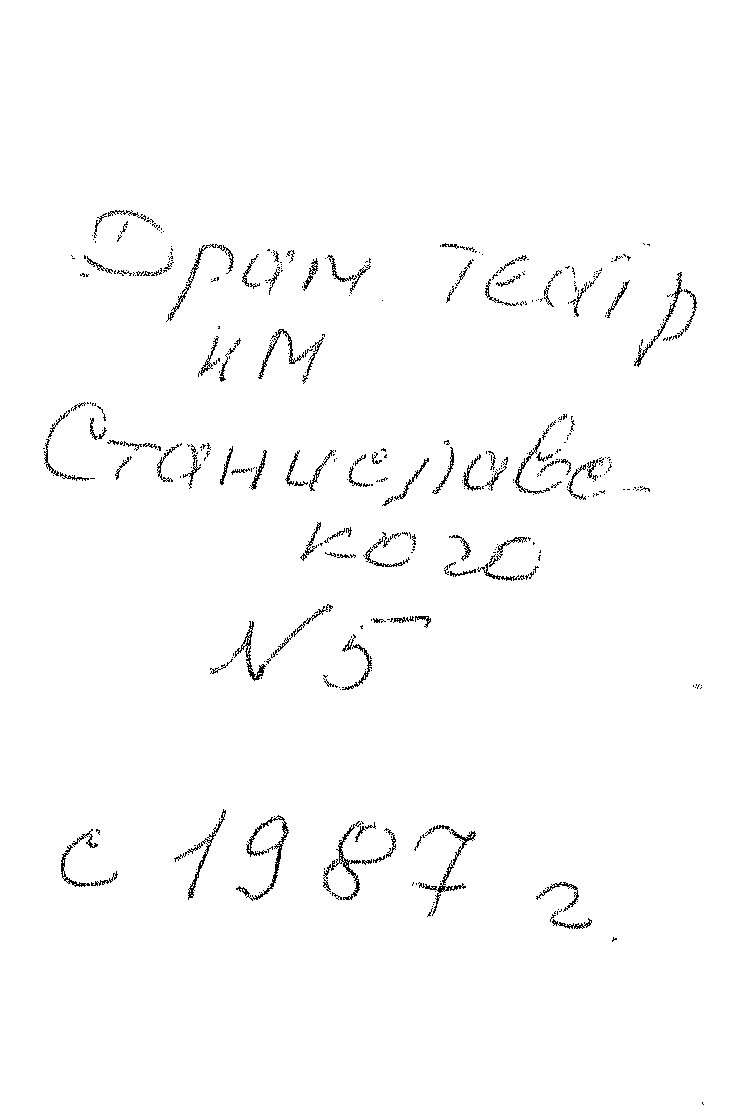 Драм. театр
им
Станиславс-
кого
N 5
с 1987 г.